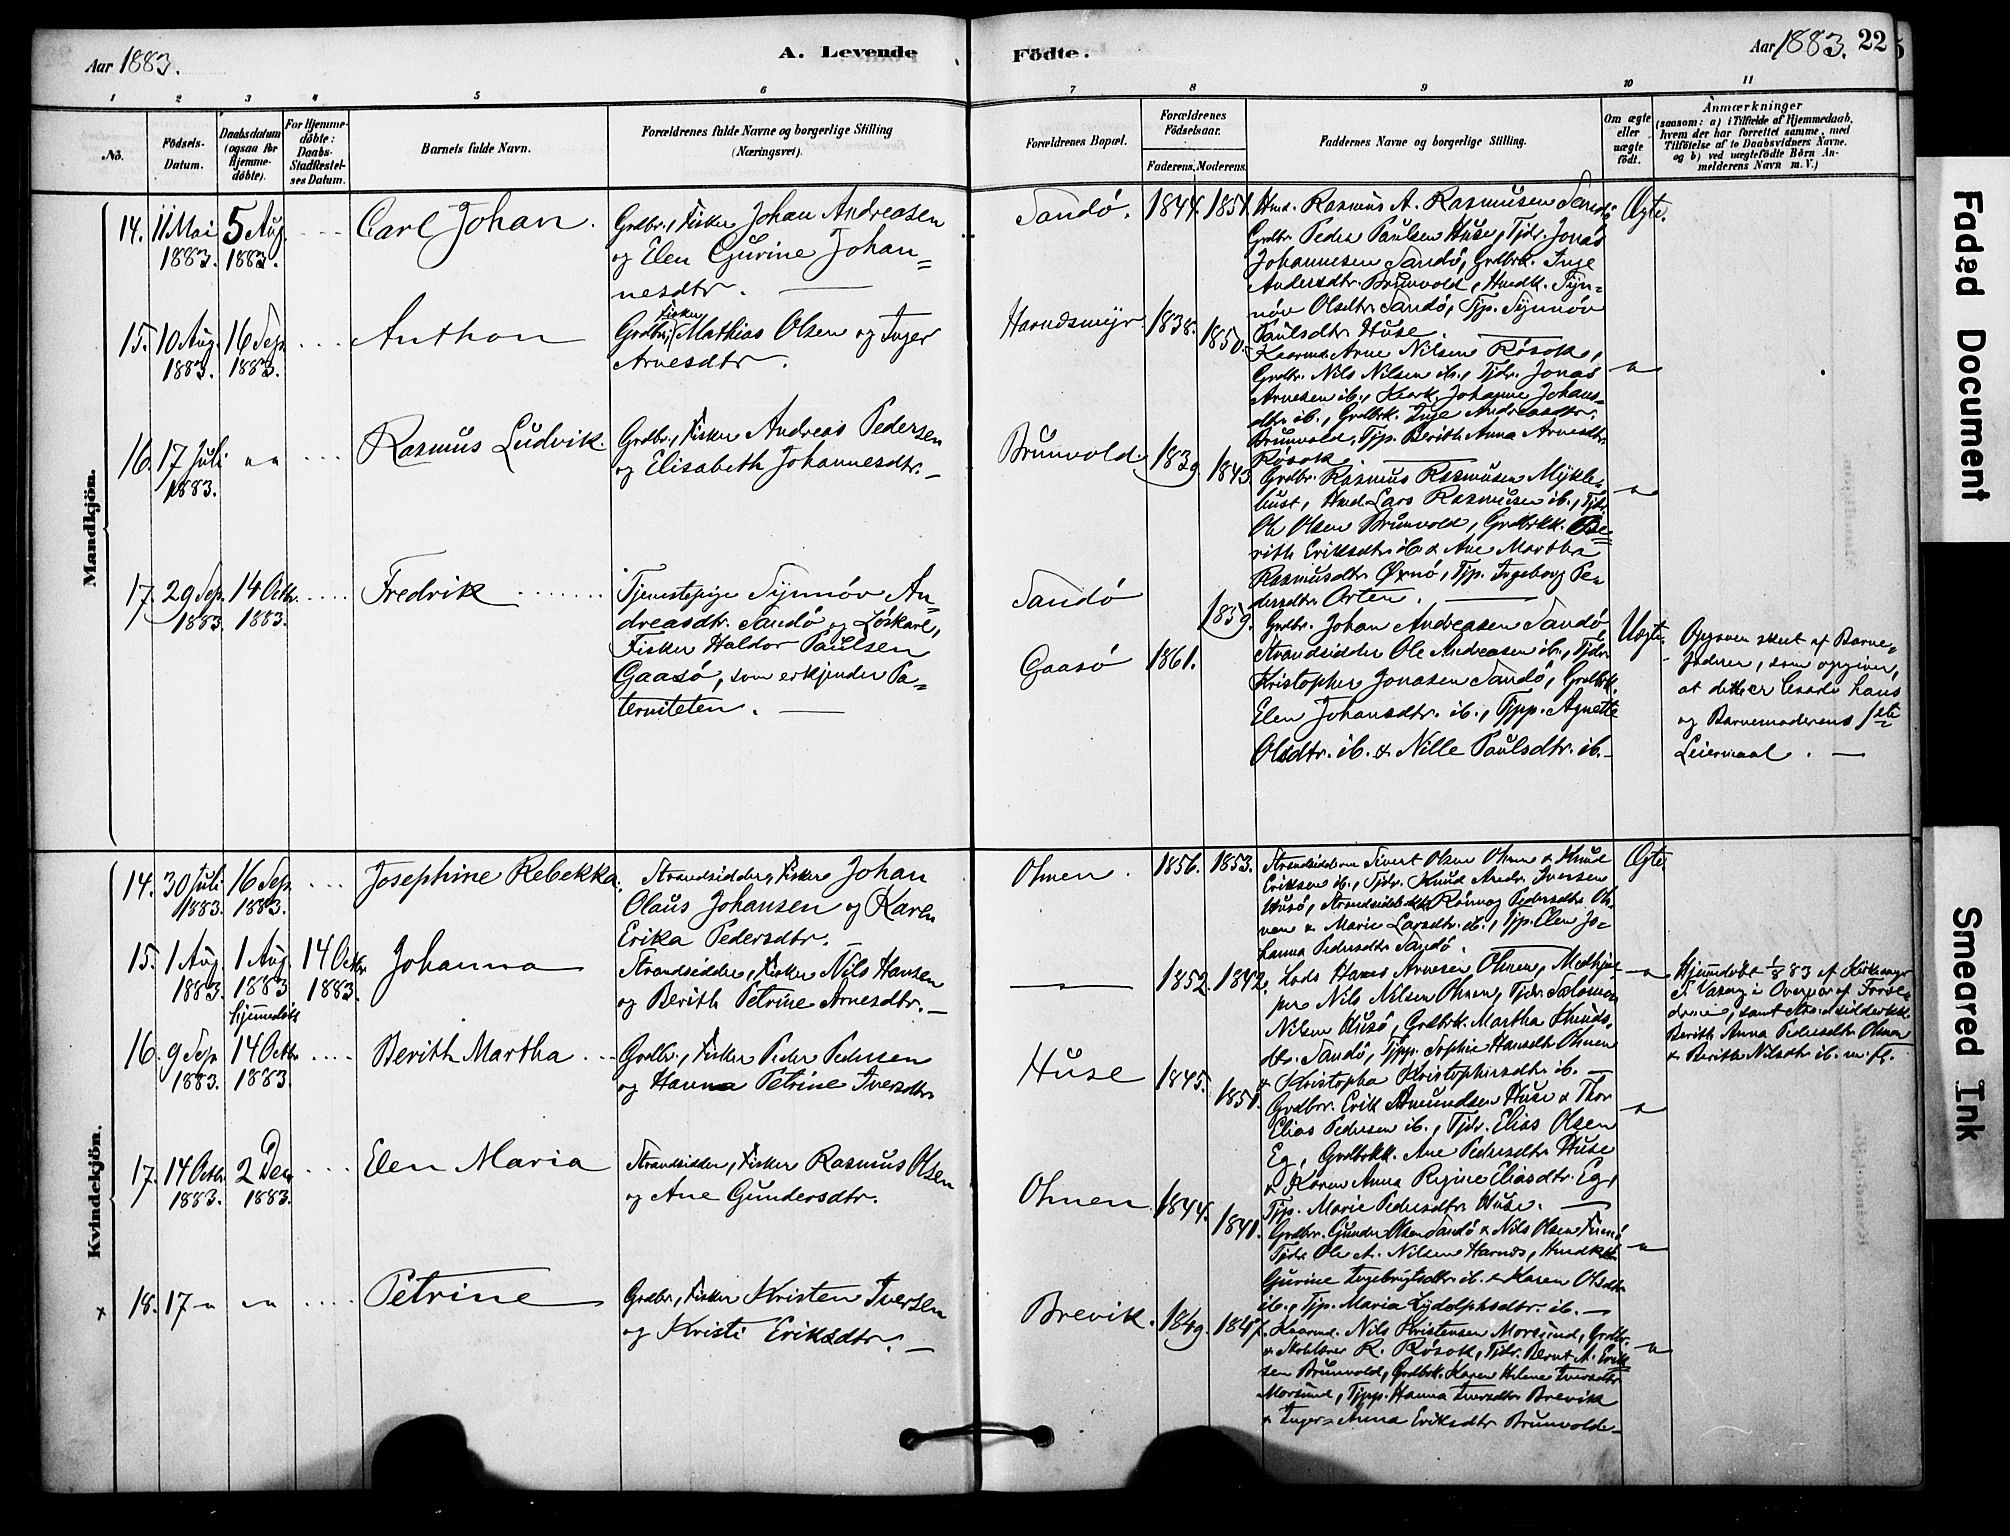 Aar 1883.
A. Levende
Födte.
Aar 1883.
22
1
2
3
4
5
6
7
8
9
10
11
No.
Födsels-Datum.
Daabsdatum (ogsaa for Hjemme-döbte).
For Hjemme-döbte: Daabs-Stadfæstel-ses Datum.
Barnets fulde Navn.
Forældrenes fulde Navne og borgerlige Stilling (Næringsvei).
Forældrenes Bopæl.
Forældrenes Födselsaar.
Faderens.
Moderens.
Faddernes Navne og borgerlige Stilling.
Om ægte eller uægte födt.
Anmærkninger
(saasom: a) i Tilfælde af Hjemmedaab, hvem der har forrettet samme, med Tilföielse af to Daabsvidners Navne. og b) ved uægtefödte Börn An-melderens Navn m. V.)
Mandkjön.
14. 11 Mai 1883. 5 Aug. 1883.
Carl Johan.
Grdbr., Fisker Johan Andreasen
og Elen Gurine Johan=
nesdtr.
Sandö. 1844. 1851.
Hmd. Rasmus A. Rasmusen Sandö
Grdbr. Peder Paulsen Huse, Tjdr. Jonas
Johannesen Sandö, Grdbrk. Inge
Andersdtr. Brunvold, Hmdk. Syn=
növ Olsdtr. Sandö, Tjp. Synnöv
Paulsdtr. Huse.
Ægte.
15. 10 Aug. 1883. 16 Sep. 1883.
Anthon
Grdbr., Fisker Mathias Olsen og Inger
Arnesdtr.
Harndsmyr 1838. 1850.
Kaarmd. Arne Nilsen Røsok,
Grdbr. Nils Nilsen ib., Tjdr. Jonas
Arnesen ib., Kaark. Johanne Johans=
dtr. ib., Grdbrk. Inge Andreasdtr.
Brunvold, Tjp. Berith Anna Arnesdtr.
Røsok.
16. 17 Juli 1883.
Rasmus Ludvik.
Grdbr., Fisker Andreas Pedersen
og Elisabeth Johannesdtr.
Brunvold. 1839 1843
Grdbr. Rasmus Rasmusen Mykle=
bust, Hmd. Lars Rasmusen ib., Tjdr.
Ole Olsen Brunvold, Grdbrkk. Be=
rith Eriksdtr. ib. & Ane Martha
Rasmusdtr. Oxnö, Tjp. Ingeborg Pe=
dersdtr. Orten.
17. 29 Sep. 1883. 14 Octbr. 1883.
Fredrik
Tjenestepige Synnöv An=
dreasdtr. Sandö og Löskarl,
Fisker Haldor Paulsen
Gaasö, som erkjender Pa=
terniteten.
Sandö
Gaasö 1861. 1859.
Grdbr. Johan Andreasen Sandö
Strandsidder Ole Andreasen ib., Tjdr.
Kristopher Jonasen Sandö, Grdbrk.
Elen Johansdtr. ib., Tjpp. Agnette
Olsdtr. ib. & Nille Paulsdtr. ib.
Uægte.
Opgaven skeet af Barne=
faderen, som opgiver,
at dette er baade hans
og Barnemoderens 1ste
Leiermaal.
Kvindekjön.
14. 30 Juli 1883. 16 Sep. 1883.
Josephine Rebekka.
Strandsidder, Fisker Johan
Olaus Johansen og Karen
Erika Pedersdtr.
Ohnen. 1856. 1853.
Strandsidderne Sivert Olsen Ohnen & Knud
Eriksen ib., Tjdr. Knud Andr. Iversen
Husö, Strandsidderkk. Rönnog Pedersdtr. Oh=
nen & Marie Larsdtr. ib., Tjp. Elen Jo=
hanna Pedersdtr. Sandö.
Ægte.
15. 1 Aug. 1883. 1 Aug. 1883 hjemmedöbt 14 Octbr. 1883.
Johanna
Strandsidder, Fisker Nils Hansen
og Berith Petrine Arnesdtr.
1852. 1842.
Lods Hans Arnesen Ohnen, Medhjæl=
per Nils Nilsen Ohnen, Tjdr. Salomon
Nilsen Husö, Grdbrk. Martha Knuds=
dtr. Sandö, Tjpp. Sophie Hansdtr. Ohnen
& Kristopha Kristophersdtr. ib.
Hjemmedöbt 1/8 83 af Kirkesanger
Vaseng i Overvær af Foræl=
drene, samt Strandsidderkk.
Berith Anna Pedersdtr. Ohnen
& Berith Nilsdtr. ib. m. fl.
16. 9 Sep. 1883. 14 Octbr. 1883.
Berith Martha
Grdbr., Fisker Peder Pedersen
og Hanna Petrine Iversdtr.
Huse 1845. 1851.
Grdbrr. Erik Amundsen Huse & Thor
Elias Pedersen ib., Tjdr. Elias Olsen
Eg, Grdbrkk. Ane Pedersdtr. Huse
& Karen Anna Regine Eliasdtr. Eg,
Tjp. Marie Pedersdtr. Huse.
17. 14 Octbr. 1883. 2 Dec. 1883.
Elen Maria
Strandsidder, Fisker Rasmus Olsen
og Ane Gundersdtr.
Ohnen 1844. 1841.
Grdbrr. Gunder Olsen Sandö & Nils Olsen
Tjdr. Ole A. Nilsen Harnes, Hmdkk.
Gurine Ingebrigtsdtr. ib. & Karen Olsdtr.
ib., Tjp. Maria Lydolphsdtr. ib.
18. 17
Petrine
Grdbr., Fisker Kristen Iversen
og Kristi Eriksdtr.
Brevik. 1849. 1847.
Kaarmd. Nils Kristensen Morsund, Grdbr.
& Skolelærer R. Røsok, Tjdr. Bernt A. Erik
sen Brunvold, Grdbrk. Karen Helene Iversdtr.
Morsund, Tjpp. Hanna Iversdtr. Brevik
& Inger Anna Eriksdtr. Brunvold
Faded Document
Smeared Ink